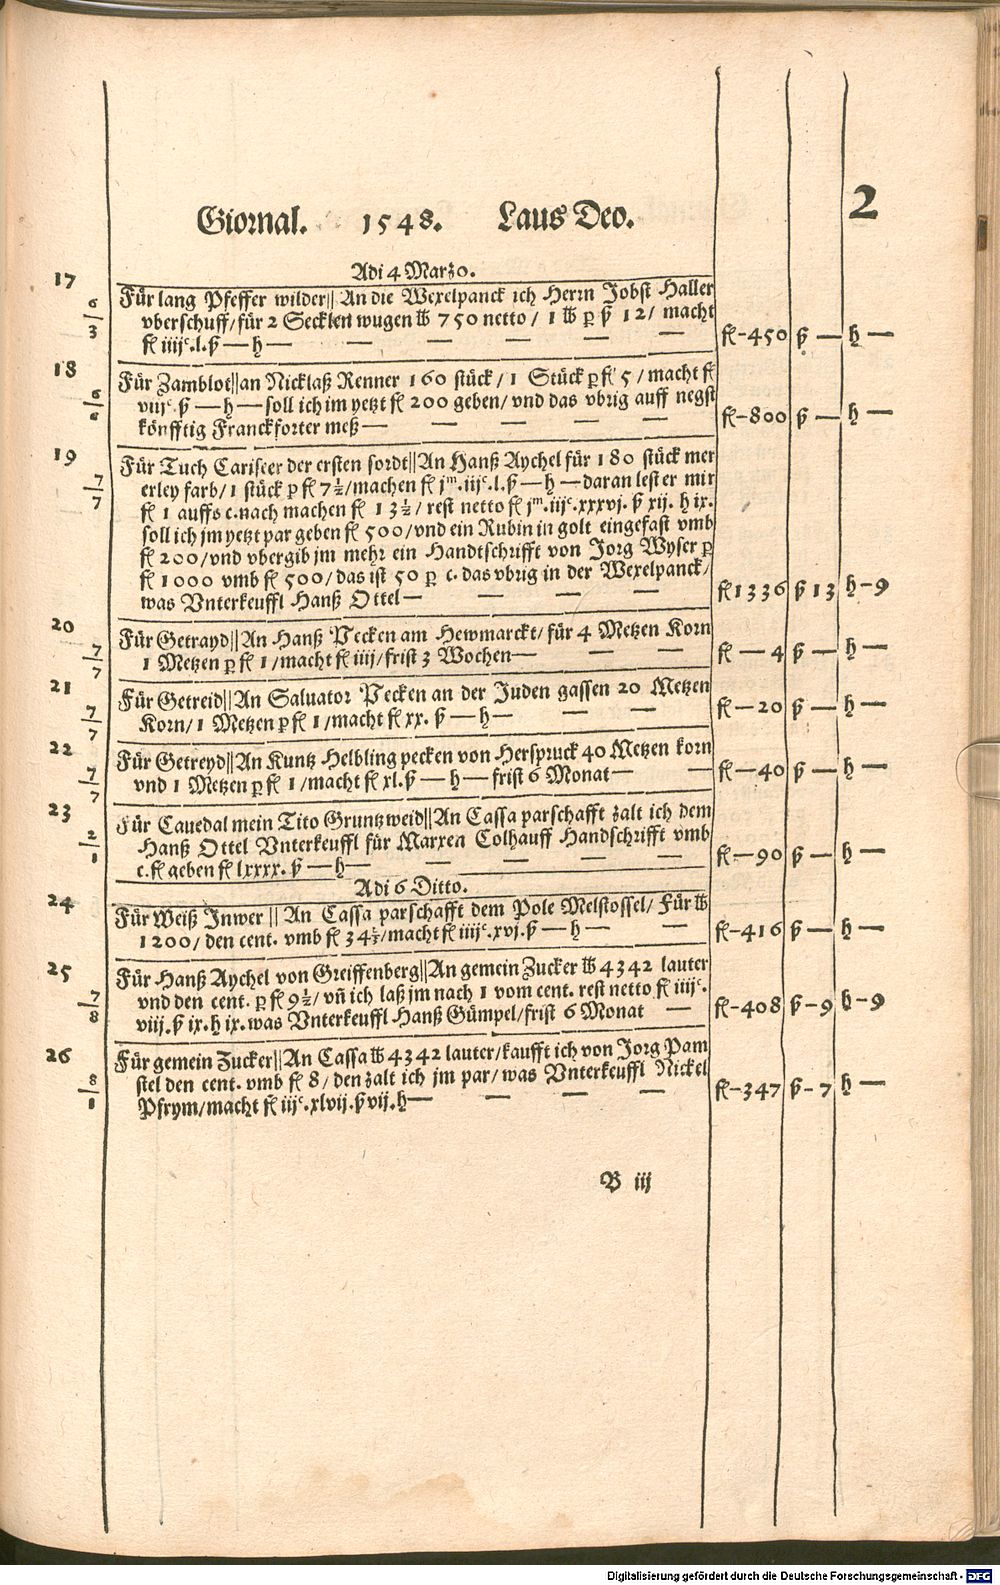 2
Giornal. 1548. Laus Deo.
Adi 4 Marzo.
17
6/3
Für lang Pfeffer wilder||An die Wexelpanck ich Herrn Jobst Haller
vberschuff/für 2 Secklen wugen ℔ 750 netto/ 1 ℔ p ß 12/ macht
fl iiijᶜ.l.ß — h — — — — — —
fl-450 ß — h —
18
6/6
Für Zamblot||an Nicklaß Renner 160 stück/1 Stück p fl 5/macht fl
viijᶜ.ß — h — soll ich im yetzt fl 200 geben/vnd das vbrig auff negst
könfftig Franckforter meß — — — — —
fl-800 ß — h —
19
7/7
Für Tuch Cariseer der ersten sordt||An Hanß Aychel für 180 stück mer
erley farb/1 stück p fl 7½/machen fl jᵐ.iijᶜ.l.ß — h — daran lest er mir
fl 1 auffs c.nach machen fl 13½/ rest netto fl jᵐ.iijᶜ.xxxvj. ß xij. h ix.
soll ich jm yetzt par geben fl 500/vnd ein Rubin in golt eingefast vmb
fl 200/vnd vbergib jm mehr ein Handtschrifft von Jorg Wyser p
fl 1000 vmb fl 500/das ist 50 p c. das vbrig in der Wexelpanck/
was Vnterkeuffl Hanß Ottel — — — —
fl1336 ß 13 h-9
20
7/7
Für Getrayd||An Hanß Pecken am Hewmarckt/für 4 Metzen Korn
1 Metzen p fl 1/macht fl iiij/frist 3 Wochen — — —
fl — 4 ß — h —
21
7/7
Für Getreid||An Saluator Pecken an der Juden gassen 20 Metzen
Korn/1 Metzen p fl 1/macht fl xx. ß — h — — —
fl — 20 ß — h —
22
7/7
Für Getreyd||An Kuntz Helbling pecken von Herspruck 40 Metzen korn
vnd 1 Metzen p fl 1/macht fl xl.ß — h — frist 6 Monat — —
fl — 40 ß — h —
23
2/1
Für Cauedal mein Tito Gruntzweid||An Cassa parschafft zalt ich dem
Hanß Ottel Vnterkeuffl für Marxen Colhauff Handschrifft vmb
c.fl geben fl lxxxx. ß — h — — — — —
fl — 90 ß — h —
Adi 6 Ditto.
24
Für Weiß Inwer || An Cassa parschafft dem Pole Melstossel/ Für ℔
1200/den cent. vmb fl 34⅔/macht fl iiijᶜ.xvj.ß — h — —
fl-416 ß — h —
25
7/8
Für Hanß Aychel von Greiffenberg||An gemein Zucker ℔ 4342 lauter
vnd den cent. p fl 9½/ vñ ich laß jm nach 1 vom cent. rest netto fl iiijᶜ.
viij.ß ix.h ix.was Vnterkeuffl Hanß Gümpel/frist 6 Monat —
fl-408 ß-9 h-9
26
8/1
Für gemein Zucker||An Cassa ℔ 4342 lauter/kaufft ich von Jorg Pam
stel den cent. vmb fl 8/den zalt ich jm par/was Vnterkeuffl Nickel
Pfrym/macht fl iijᶜ.xlvij.ß vij.h — — — —
fl-347 ß-7 h —
B iij
Digitalisierung gefördert durch die Deutsche Forschungsgemeinschaft - DFG